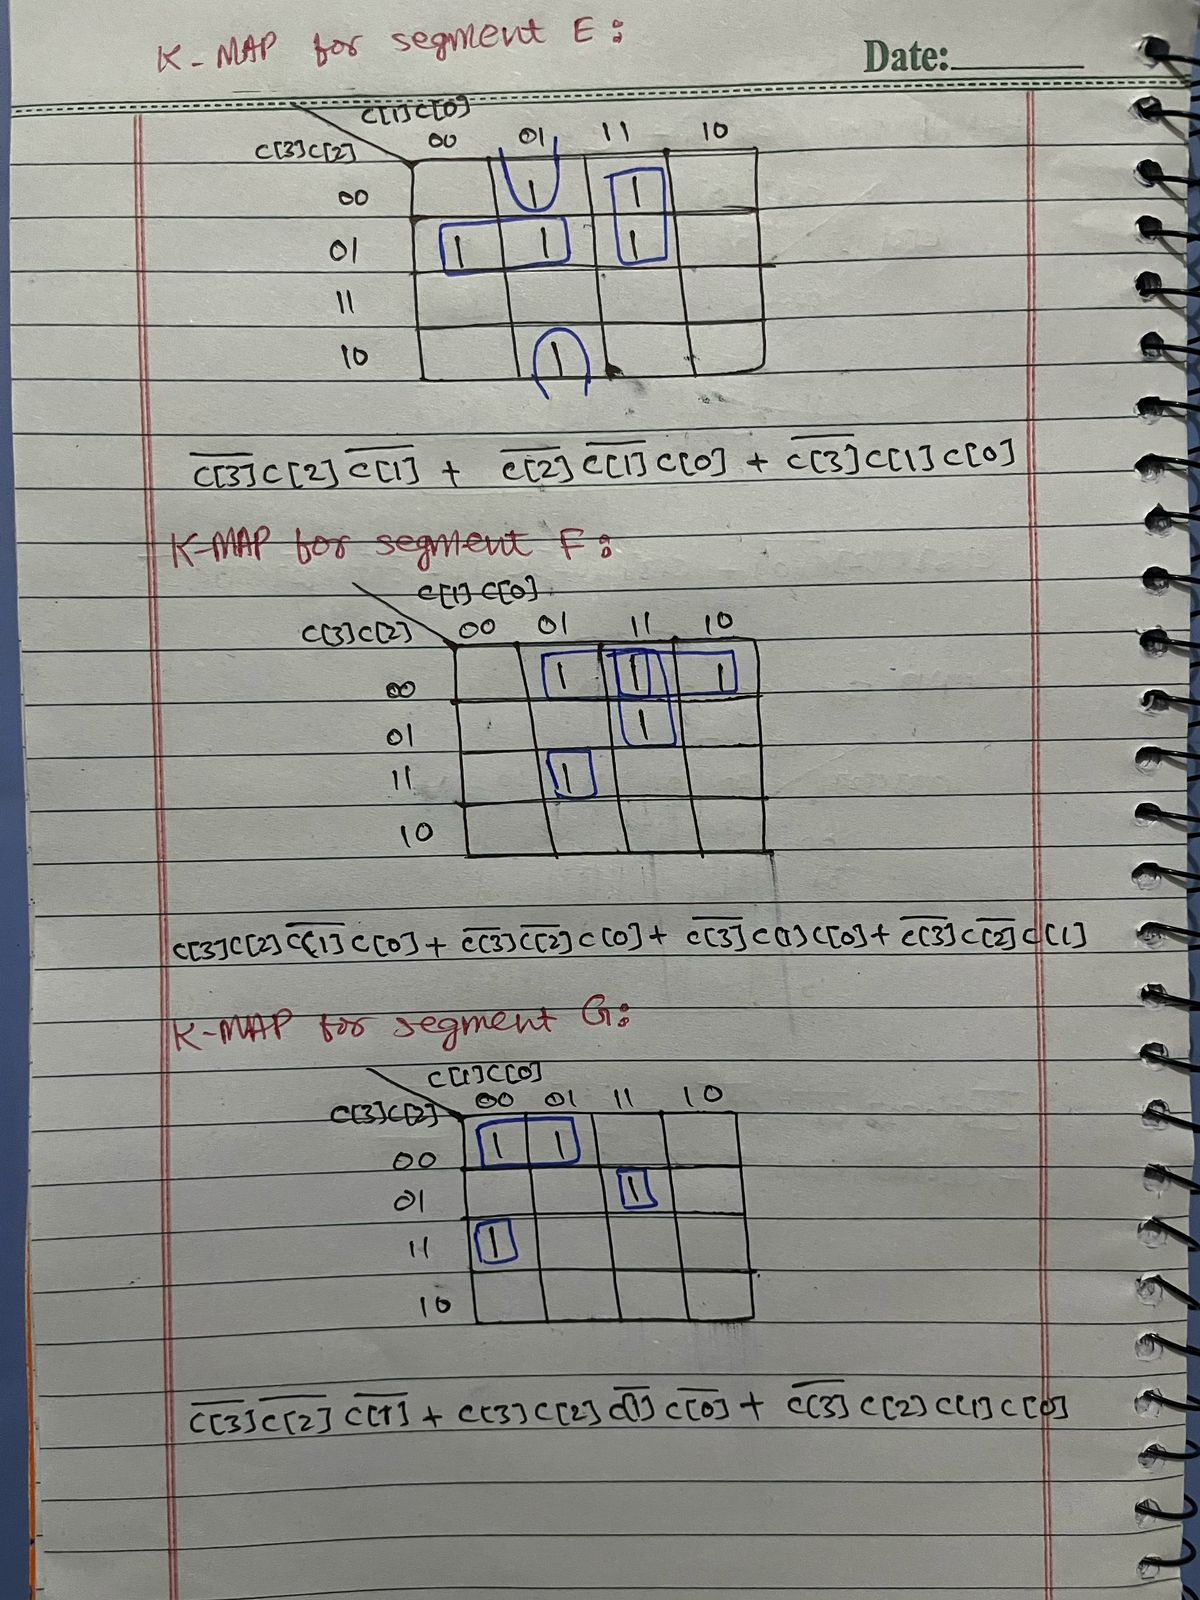 K-MAP for segment E:
Date:
C[1]C[0]
C[3]C[2] 00 01 11 10
00 1 1
01 1 1 1
11
10 1
C̅[̅3̅]̅C[2]C̅[̅1̅]̅ + C̅[̅2̅]̅C̅[̅1̅]̅C[0] + C̅[̅3̅]̅C[1]C[0]
K-MAP for segment F:
C[1]C[0]
C[3]C[2] 00 01 11 10
00 1 1 1
01 1
11 1
10
C[3]C[2]C̅[̅1̅]̅C[0] + C̅[̅3̅]̅C̅[̅2̅]̅C[0] + C̅[̅3̅]̅C[1]C[0] + C̅[̅3̅]̅C̅[̅2̅]̅C[1]
K-MAP for segment G:
C[1]C[0]
C[3]C[2] 00 01 11 10
00 1 1
01 1
11 1
10
C̅[̅3̅]̅C̅[̅2̅]̅C̅[̅1̅]̅ + C[3]C[2]C̅[̅1̅]̅C̅[̅0̅]̅ + C̅[̅3̅]̅C[2]C[1]C[0]